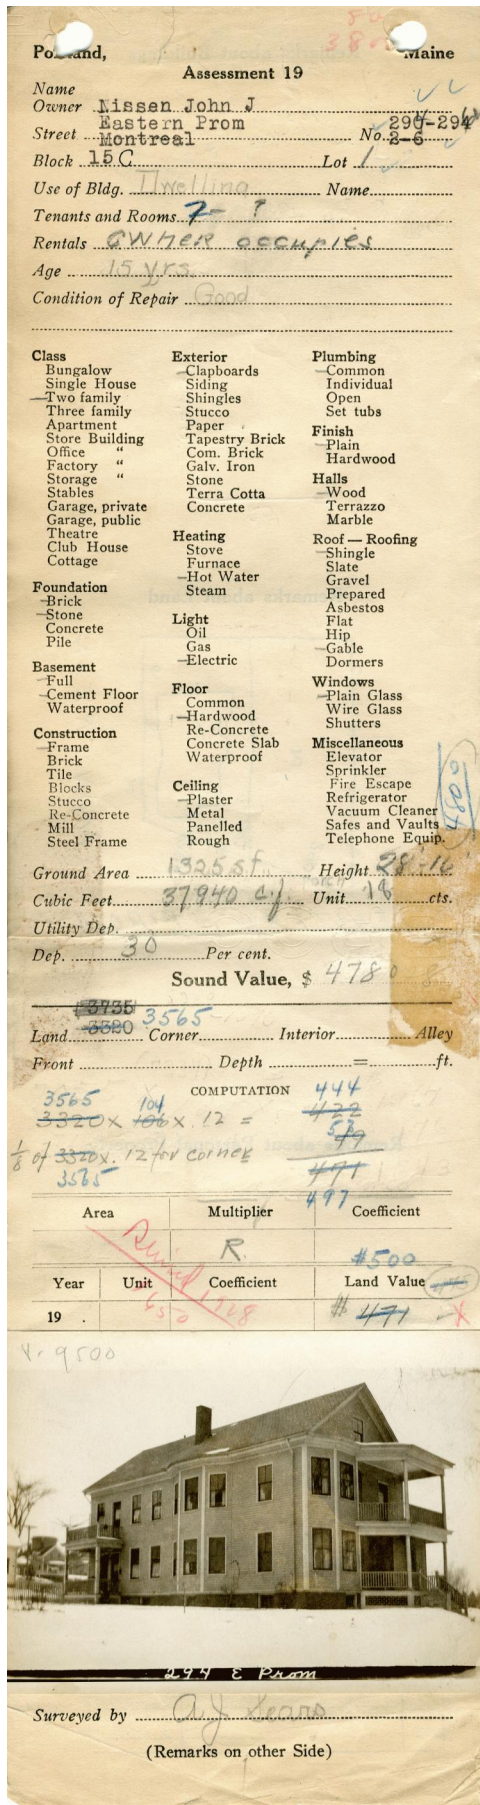 Portland, Maine
Assessment 19
Name
Owner Nissen John J
Eastern Prom 290-294
Street Montreal No. 2-6
Block 15C Lot 1
Use of Bldg. Dwelling Name
Tenants and Rooms 7- ?
Rentals OWNER occupies
Age 15 yrs.
Condition of Repair Good
Class
Bungalow
Single House
Two family
Three family
Apartment
Store Building
Office "
Factory "
Storage "
Stables
Garage, private
Garage, public
Theatre
Club House
Cottage
Foundation
Brick
Stone
Concrete
Pile
Basement
Full
Cement Floor
Waterproof
Construction
Frame
Brick
Tile
Blocks
Stucco
Re-Concrete
Mill
Steel Frame
Exterior
Clapboards
Siding
Shingles
Stucco
Paper
Tapestry Brick
Com. Brick
Galv. Iron
Stone
Terra Cotta
Concrete
Heating
Stove
Furnace
Hot Water
Steam
Light
Oil
Gas
Electric
Floor
Common
Hardwood
Re-Concrete
Concrete Slab
Waterproof
Ceiling
Plaster
Metal
Panelled
Rough
Plumbing
Common
Individual
Open
Set tubs
Finish
Plain
Hardwood
Halls
Wood
Terrazzo
Marble
Roof — Roofing
Shingle
Slate
Gravel
Prepared
Asbestos
Flat
Hip
Gable
Dormers
Windows
Plain Glass
Wire Glass
Shutters
Miscellaneous
Elevator
Sprinkler
Fire Escape
Refrigerator
Vacuum Cleaner
Safes and Vaults
Telephone Equip.
Ground Area 1325 s.f. Height 28-16
Cubic Feet 37940 c.f. Unit 18 cts.
Utility Dep.
Dep. 30 Per cent.
Sound Value, $ 4780
3735
3320 3565
Land Corner Interior Alley
Front Depth = ft.
COMPUTATION
3565 104 444
3320 x 106 x .12 = 422
53 49
1/8 of 3320 x .12 for corner 471
3565
497
Area Multiplier Coefficient
R. #500
Year Unit Coefficient Land Value
19 . # 471
Revised 1928
650
V. 9500
294 E Prom
Surveyed by A J Sears
(Remarks on other Side)